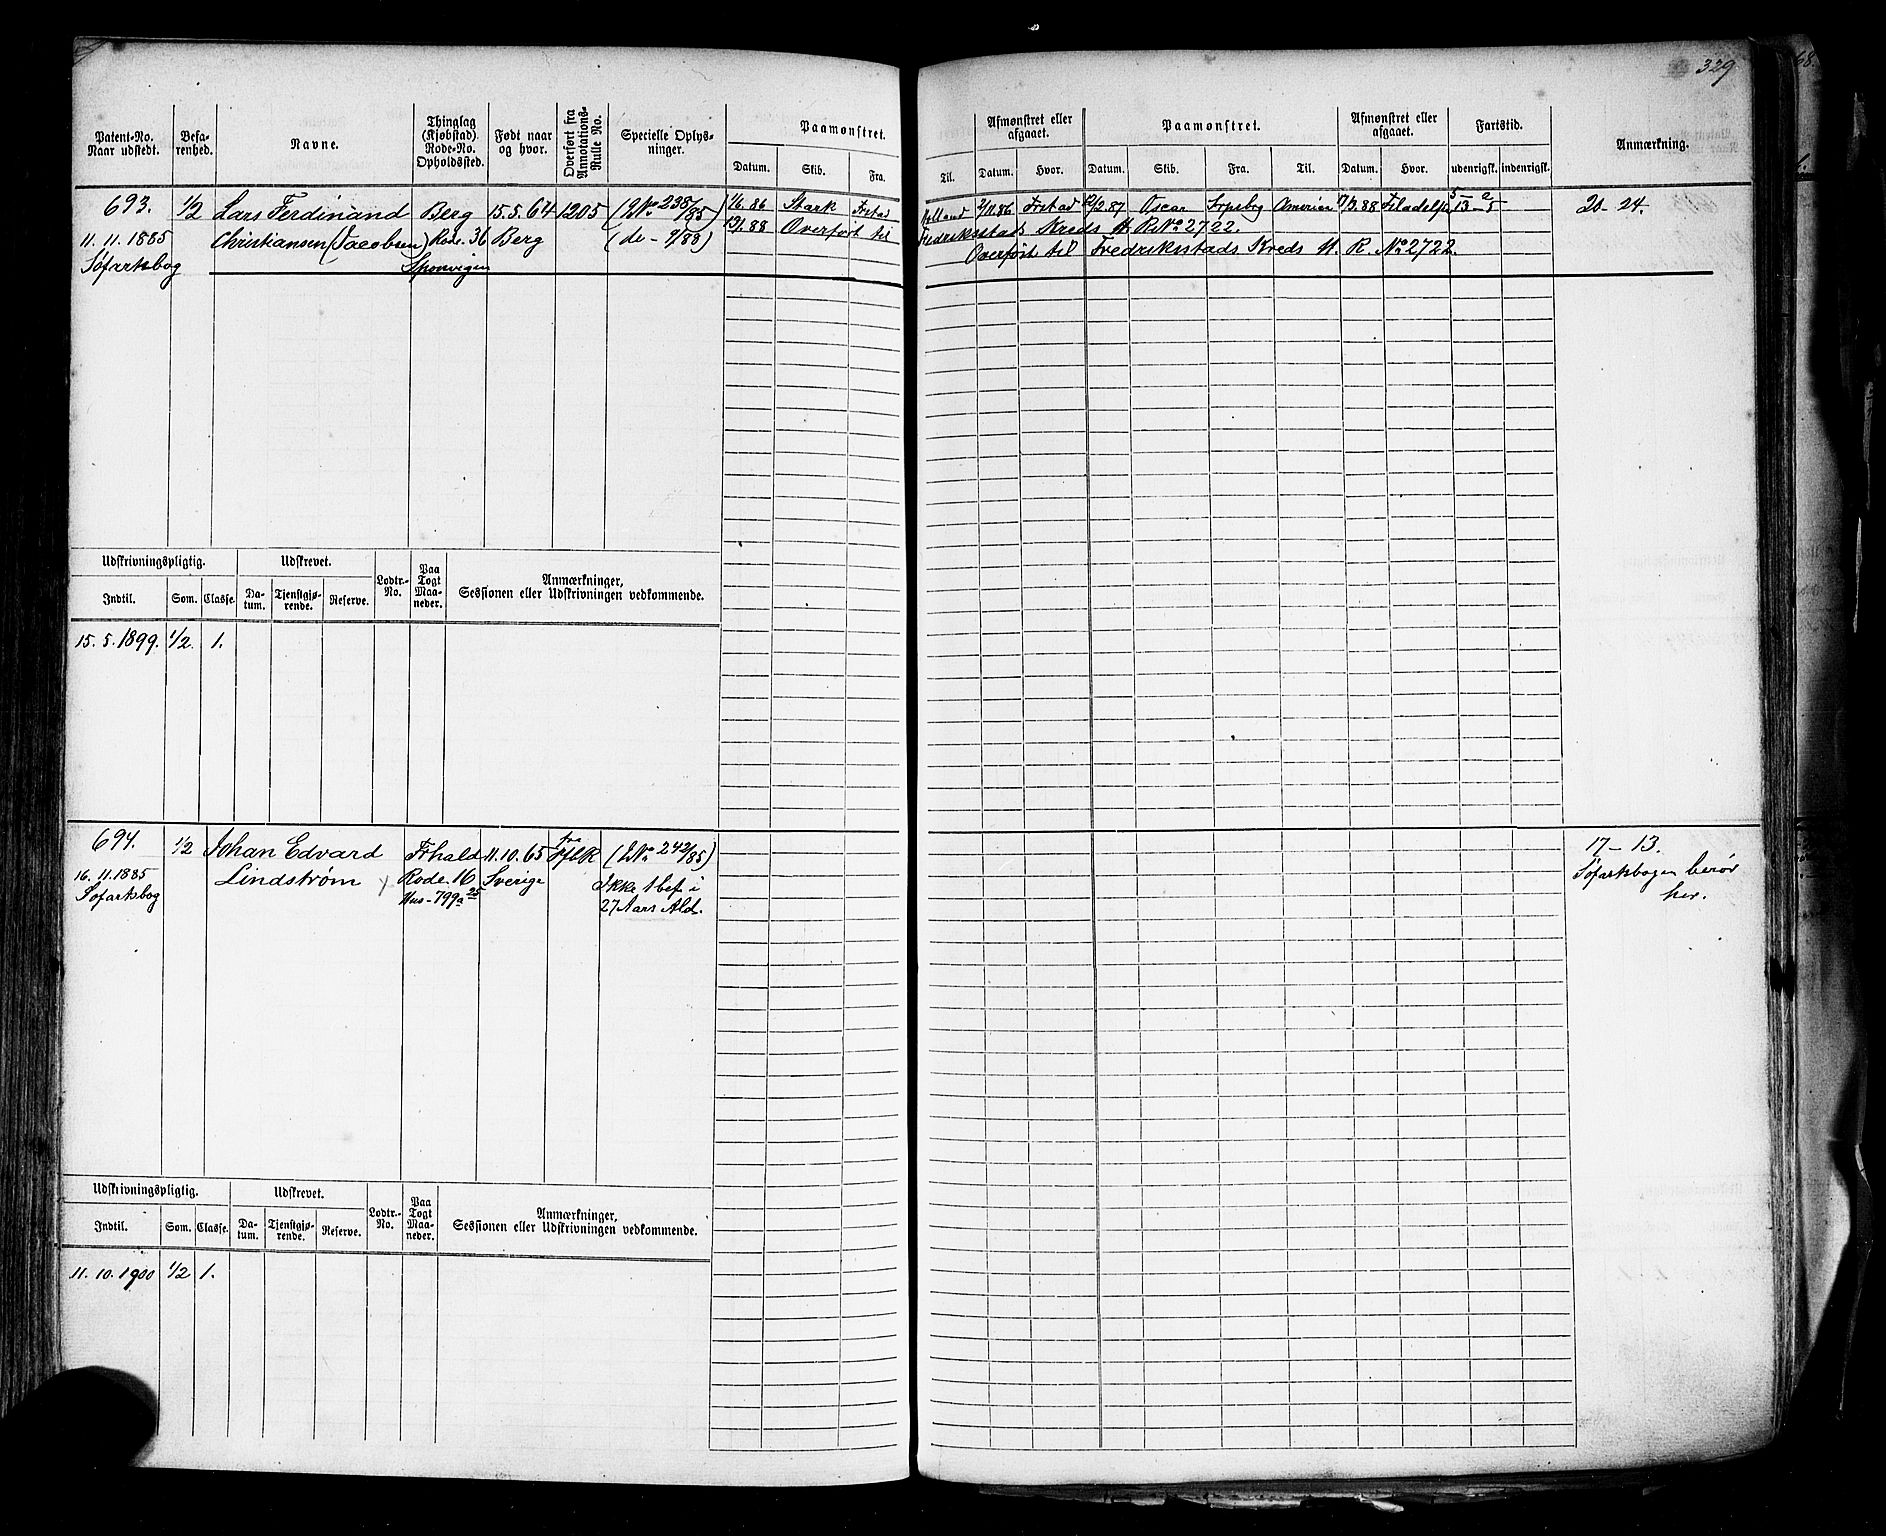 329
Patent-No. Naar udstedt.
Befarenhed.
Navne.
Thinglag (Kjøbstad) Rode-No. Opholdssted.
Født naar og hvor.
Overført fra Annotations-Rulle No.
Specielle Oplysninger.
Paamønstret.
Datum. Skib. Fra.
Til.
Afmønstret eller afgaaet.
Datum. Hvor.
Paamønstret.
Datum. Skib. Fra. Til.
Afmønstret eller afgaaet.
Datum. Hvor.
Fartstid.
udenrigsk. indenrigsk.
Anmærkning.
693. 1/2 Lars Ferdinand Berg 15.5.64 1205 (J No 235/85) 1/6.86 Stark Frstad
Holland 2/11.86 Frstad 12/2.87 Oscar Amerika 17/3.88 Filadelfia 20-24.
11.11.1885 Christiansen (Jacobsen) Rode. 36 Berg (de - 9/88) 13/1.88 Overført til
Fredriksstads Kreds H. R. No 2722.
Søfartsbog Sponvigen
Overført til Fredriksstads Kreds H. R. No 2722.
Udskrivningspligtig. Udskrevet. Lodtr.-No. Paa Togt Maaneder. Anmærkninger, Sessionen eller Udskrivningen vedkommende.
Indtil. Som. Classe. Datum. Tjenstgjørende. Reserve.
15.5.1899. 1/2. 1.
694. 1/2 Johan Edvard Frhald 11.10.65 fra (J No 242/85) 17-13.
16.11.1885 Lindstrøm Rode. 16 Sverige Ikke 1 bef. i Søfartsbogen beror
Søfartsbog Hus-799a 27 Aars Ald. her.
Udskrivningspligtig. Udskrevet. Lodtr.-No. Paa Togt Maaneder. Anmærkninger, Sessionen eller Udskrivningen vedkommende.
Indtil. Som. Classe. Datum. Tjenstgjørende. Reserve.
11.10.1900 1/2 1.